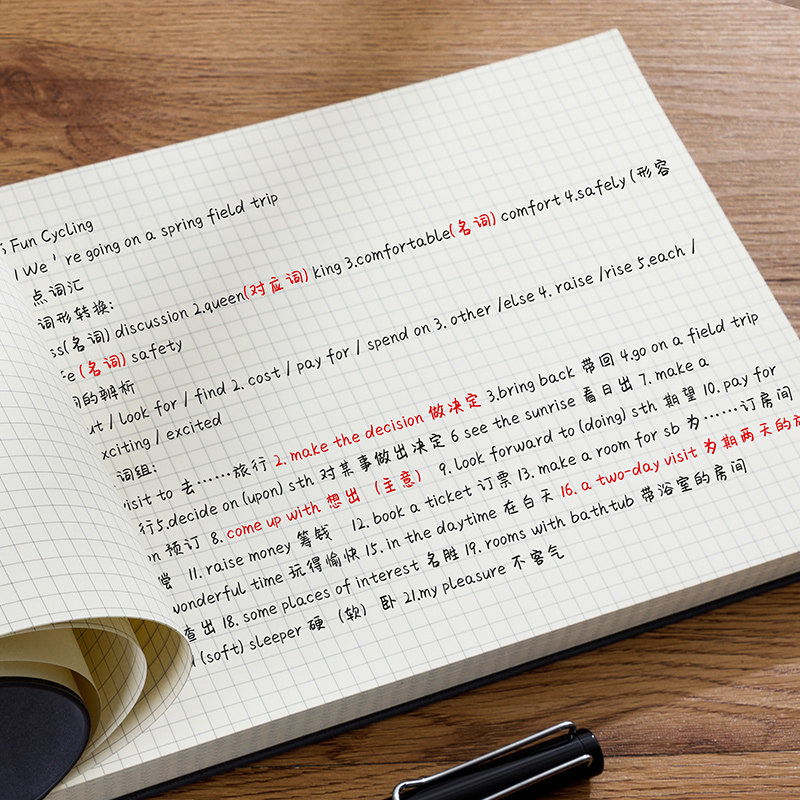 Fun Cycling
We're going on a spring field trip
点词汇
词形转换:
ss(名词) discussion 2.queen(对应词) king 3.comfortable(名词) comfort 4.safely (形容
e(名词) safety
的辨析
ut / look for / find 2. cost / pay for / spend on 3. other /else 4. raise /rise 5.each /
xciting / excited
词组:
visit to 去……旅行 2. make the decision 做决定 3.bring back 带回 4.go on a field trip
行5.decide on (upon) sth 对某事做出决定 6 see the sunrise 看日出 7. make a
on 预订 8. come up with 想出（主意） 9. look forward to (doing) sth 期望 10. pay for
11. raise money 筹钱 12. book a ticket 订票 13. make a room for sb 为……订房间
wonderful time 玩得愉快 15. in the daytime 在白天 16. a two-day visit 为期两天的
查出 18. some places of interest 名胜 19. rooms with bathtub 带浴室的房间
(soft) sleeper 硬（软）卧 21.my pleasure 不客气